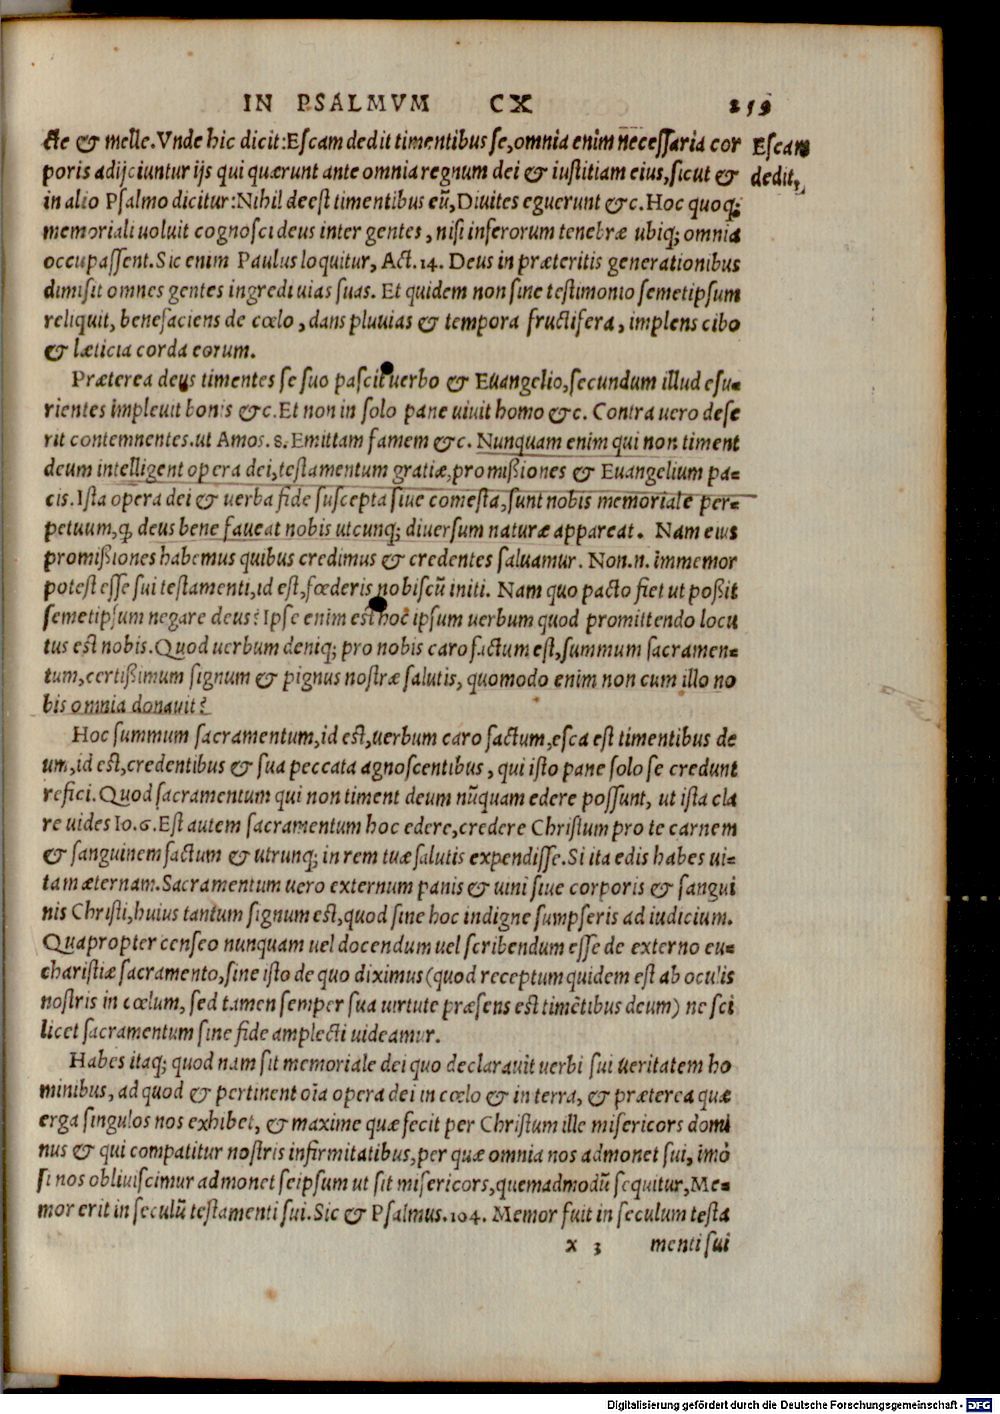 IN PSALMVM CX 259
cte & melle. Vnde hic dicit: Escam dedit timentibus se, omnia enim necessaria cor
Escam
poris adijciuntur ijs qui quærunt ante omnia regnum dei & iustitiam eius, sicut &
dedit,
in alio Psalmo dicitur: Nihil deest timentibus eũ, Diuites eguerunt &c. Hoc quoq;
memoriali uoluit cognosci deus inter gentes, nisi inferorum tenebræ ubiq; omnia
occupassent. Sic enim Paulus loquitur, Act. 14. Deus in præteritis generationibus
dimisit omnes gentes ingredi uias suas. Et quidem non sine testimonio semetipsum
reliquit, benefaciens de cœlo, dans pluuias & tempora fructifera, implens cibo
& læticia corda eorum.
Præterea deus timentes se suo pascit uerbo & Euangelio, secundum illud esu=
rientes impleuit bonis &c. Et non in solo pane uiuit homo &c. Contra uero dese
rit contemnentes. ut Amos. 8. Emittam famem &c. Nunquam enim qui non timent
deum intelligent opera dei, testamentum gratiæ, promißiones & Euangelium pa=
cis. Ista opera dei & uerba fide suscepta siue comesta, sunt nobis memoriale per=
petuum, q, deus bene faueat nobis utcunq; diuersum naturæ appareat. Nam eius
promißiones habemus quibus credimus & credentes saluamur. Non.n. immemor
potest esse sui testamenti, id est, fœderis nobiscũ initi. Nam quo pacto fiet ut poßit
semetipsum negare deus? Ipse enim est hoc ipsum uerbum quod promittendo locu
tus est nobis. Quod uerbum deniq; pro nobis caro factum est, summum sacramen=
tum, certißimum signum & pignus nostræ salutis, quomodo enim non cum illo no
bis omnia donauit?
Hoc summum sacramentum, id est, uerbum caro factum, esca est timentibus de
um, id est, credentibus & sua peccata agnoscentibus, qui isto pane solo se credunt
refici. Quod sacramentum qui non timent deum nũquam edere possunt, ut ista cla
re uides Io. 6. Est autem sacramentum hoc edere, credere Christum pro te carnem
& sanguinem factum & utrunq; in rem tuæ salutis expendisse. Si ita edis habes ui=
tam æternam. Sacramentum uero externum panis & uini siue corporis & sangui
nis Christi, huius tantum signum est, quod sine hoc indigne sumpseris ad iudicium.
Quapropter censeo nunquam uel docendum uel scribendum esse de externo eu=
charistiæ sacramento, sine isto de quo diximus (quod receptum quidem est ab oculis
nostris in cœlum, sed tamen semper sua uirtute præsens est timẽtibus deum) ne sci
licet sacramentum sine fide amplecti uideamur.
Habes itaq; quod nam sit memoriale dei quo declarauit uerbi sui ueritatem ho
minibus, ad quod & pertinent oĩa opera dei in cœlo & in terra, & præterea quæ
erga singulos nos exhibet, & maxime quæ fecit per Christum ille misericors domi
nus & qui compatitur nostris infirmitatibus, per quæ omnia nos admonet sui, imò
si nos obliuiscimur admonet seipsum ut sit misericors, quemadmodũ sequitur, Me=
mor erit in seculũ testamenti sui. Sic & Psalmus. 104. Memor fuit in seculum testa
x 3 menti sui
Digitalisierung gefördert durch die Deutsche Forschungsgemeinschaft - DFG